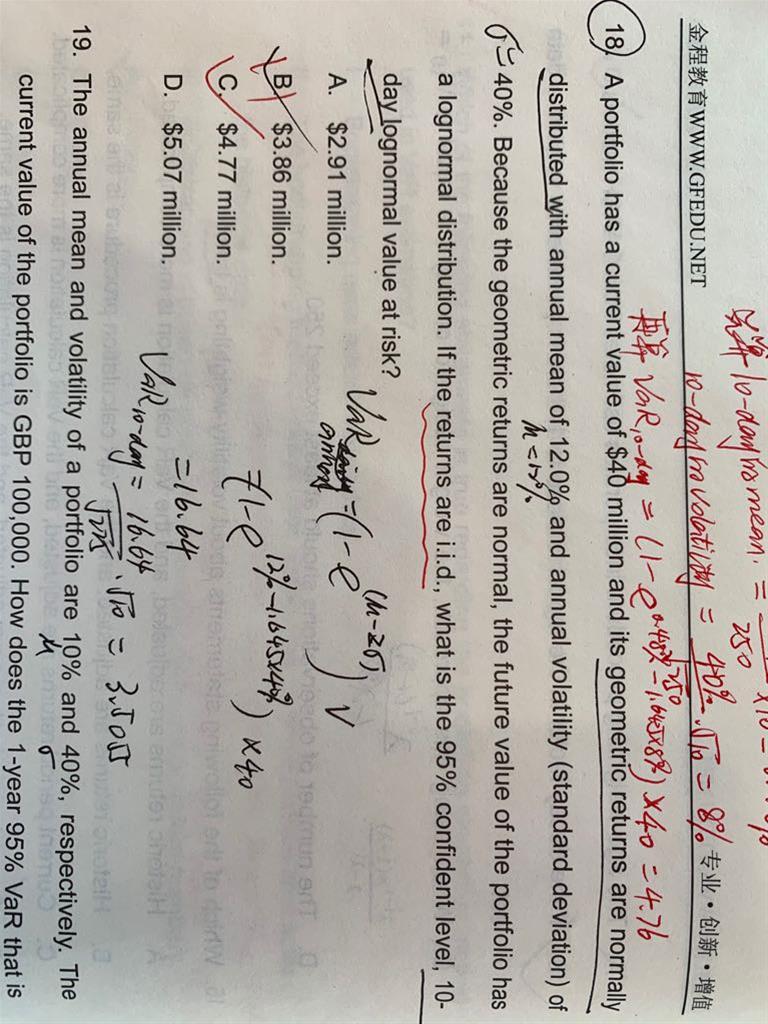 先算10-day的mean. = 250 ×10 =
金程教育WWW.GFEDU.NET
10-day的volatility = 40% . √10 = 8%
√250
专业·创新·增值
再算 VaR10-day = (1-e^0.48%-1.645×8%) ×40 = 4.76
18. A portfolio has a current value of $40 million and its geometric returns are normally
distributed with annual mean of 12.0% and annual volatility (standard deviation) of
μ=12%
σ= 40%. Because the geometric returns are normal, the future value of the portfolio has
a lognormal distribution. If the returns are i.i.d., what is the 95% confident level, 10-
day lognormal value at risk?
A. $2.91 million.
B. $3.86 million.
C. $4.77 million.
D. $5.07 million.
VaR annual = (1-e^(μ-zσ)) V
= (1-e^12%-1.645×40%) ×40
= 16.64
VaR10-day = 16.64 . √10 = 3.5055
19. The annual mean and volatility of a portfolio are 10% and 40%, respectively. The
μ σ
current value of the portfolio is GBP 100,000. How does the 1-year 95% VaR that is